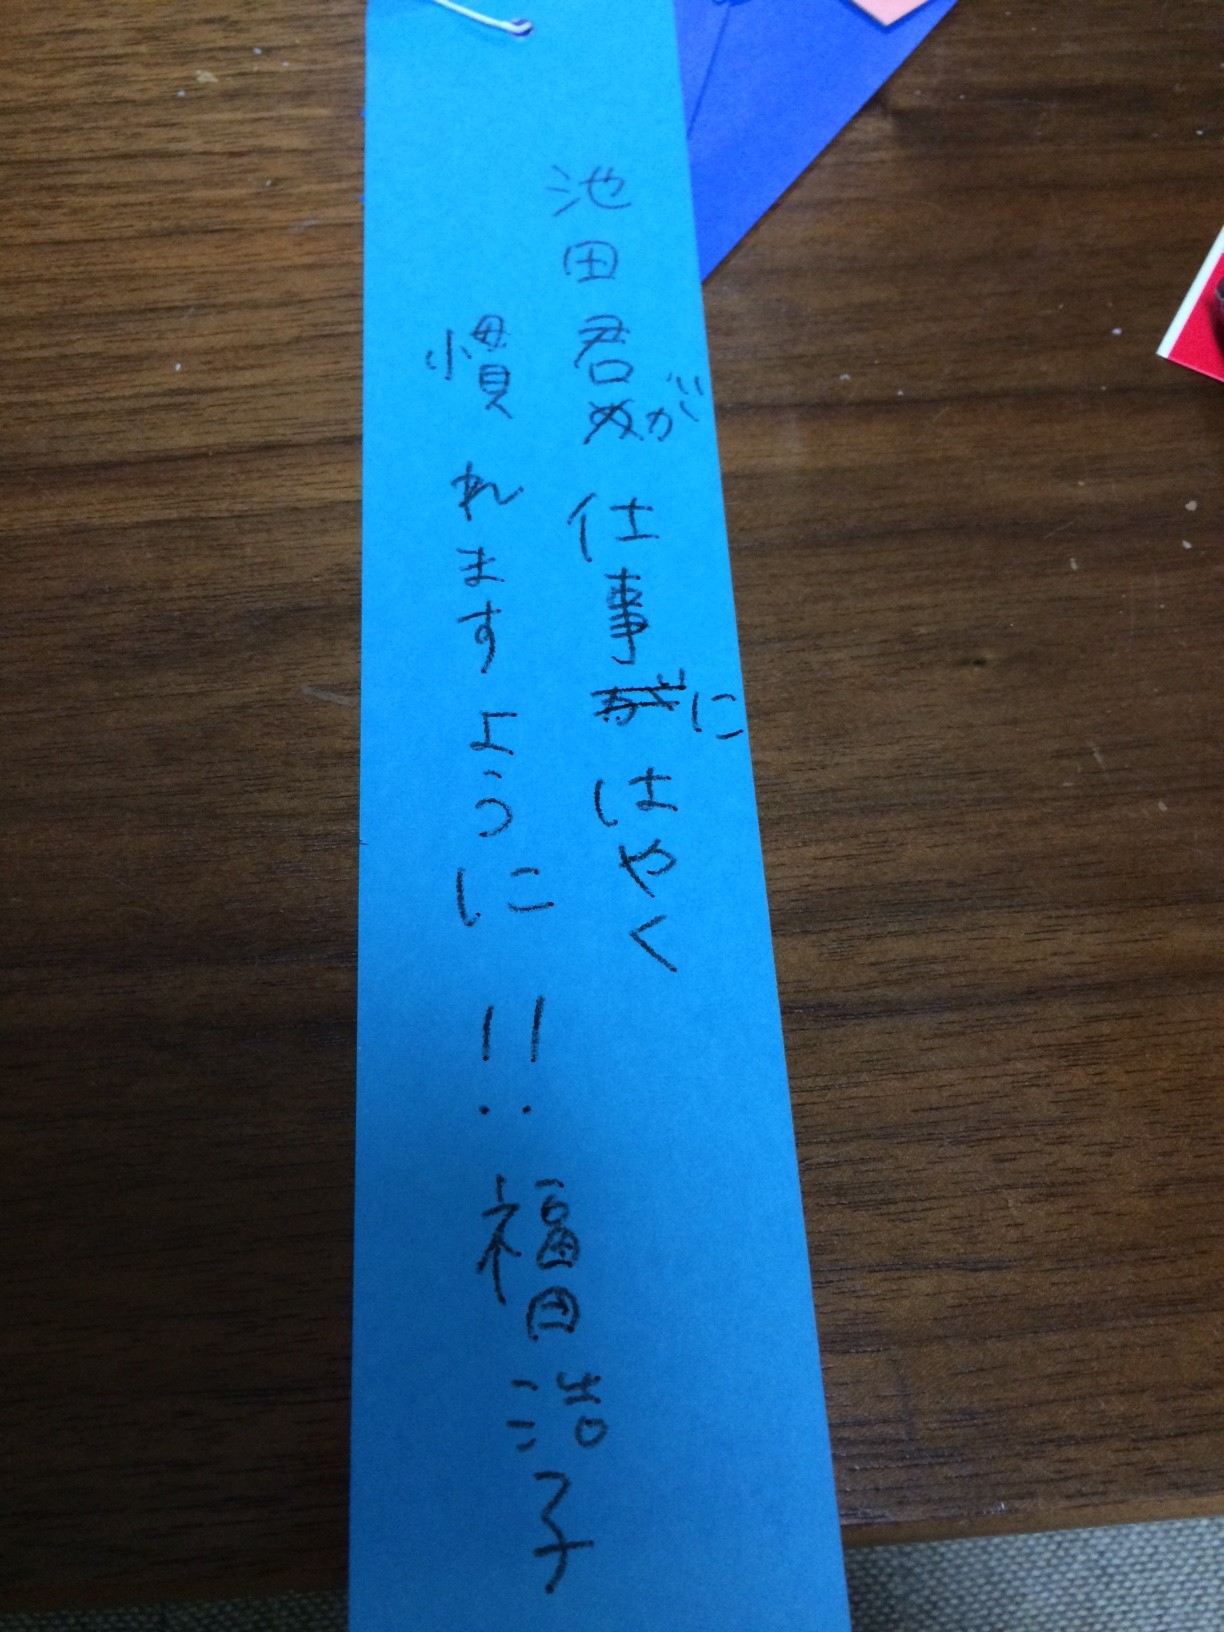 池田君が仕事にはやく
慣れますように!!
福田浩子